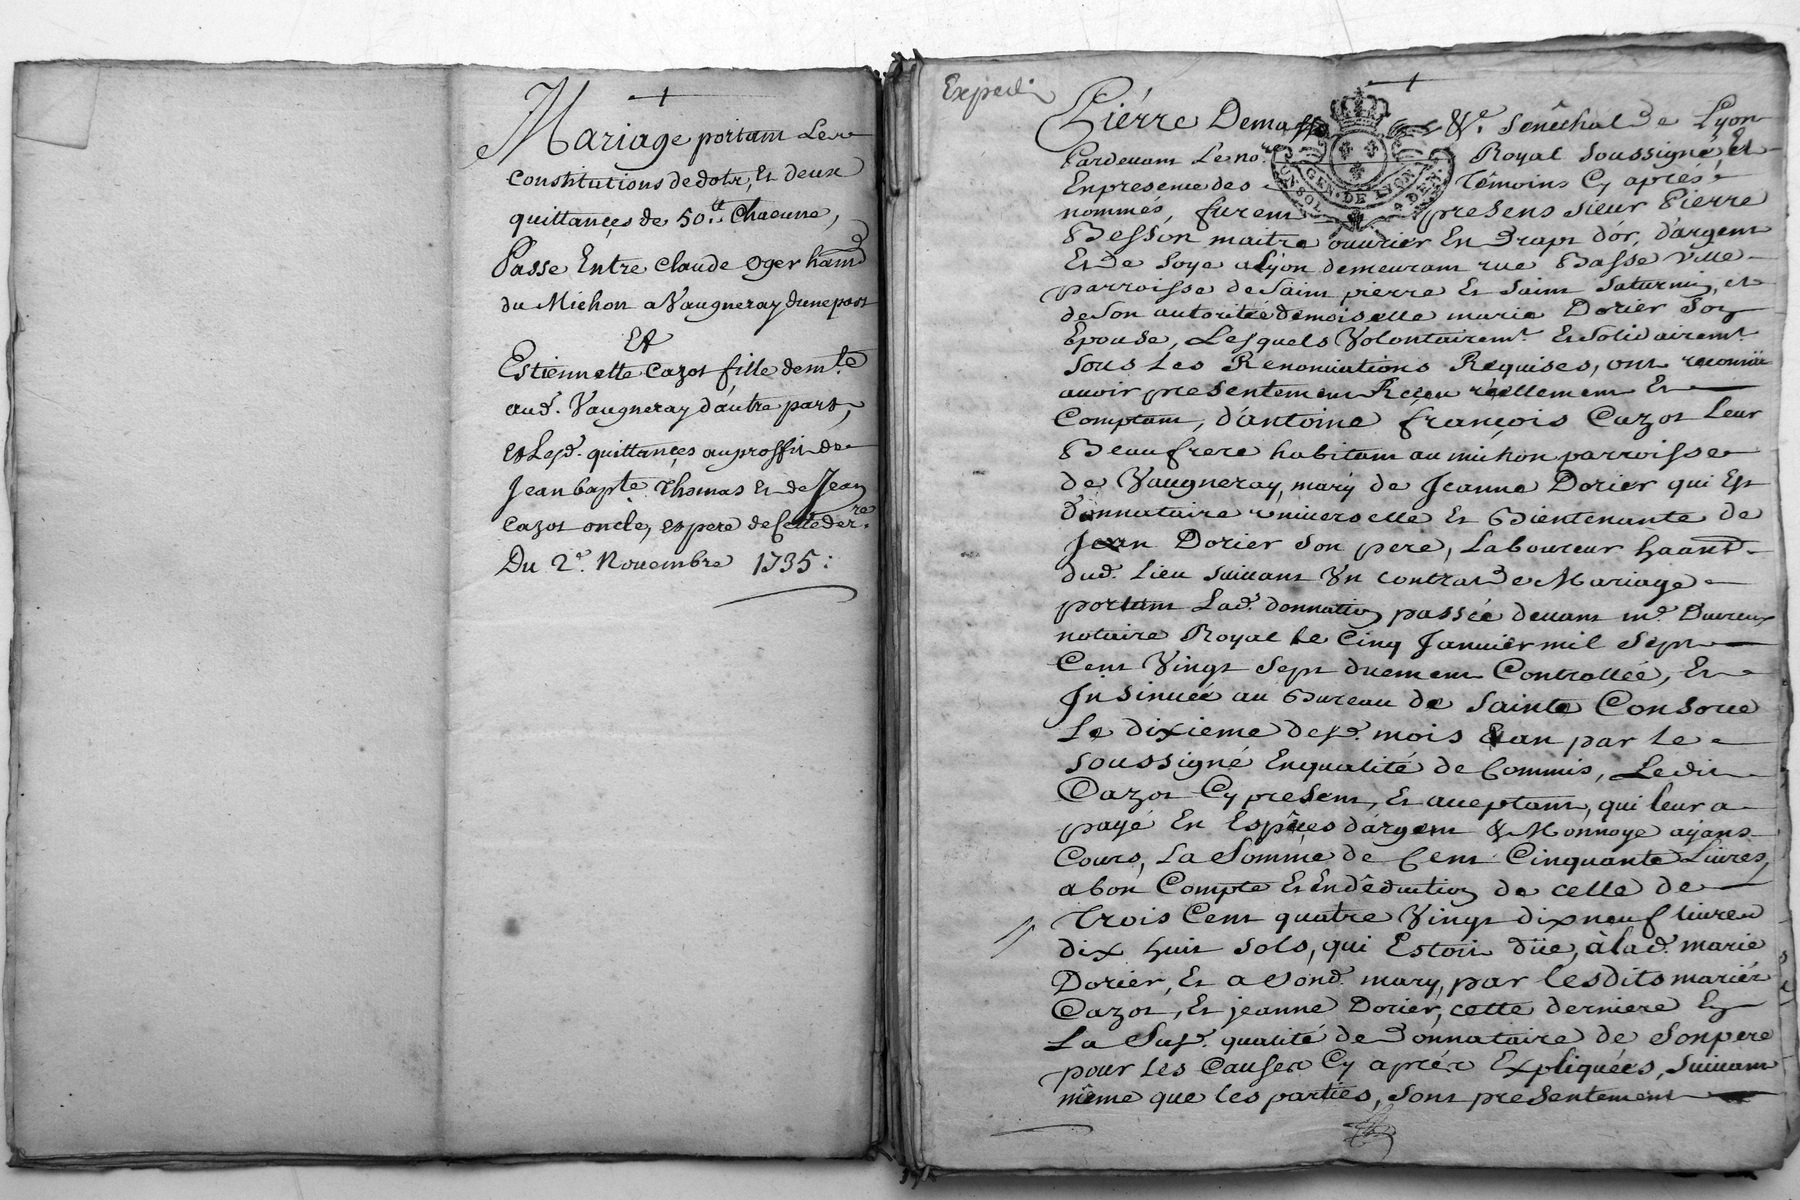 Mariage portant Les
constitutions de dotz, Et deux
quittances de 50.lt Chacune,
Passé Entre Claude Oger hant
du Michon a Vaugneray dune part
Et
Estiennette Cazot fille demte
aud. Vaugneray dautre part,
et Lesd. quittances auproffit de
Jean bapte Thomas Et de Jean
Cazot oncle, et pere de Cette derre.
Du 2e. Novembre 1735:
Expedié
Pierre Demasso &c. Senêchal de Lyon
Pardevant Le nore Royal soussigné, et
En presence des Témoins Cy aprés
nommés, furent presens sieur Pierre
Besson maitre ouvrier En Draps d'or, d'argent
Et de soye a Lyon demeurant rue Basse Ville
parroisse de saint pierre Et saint saturnin, et
de son autoritée demoiselle marie Dorier son
Epouse, Lesquels Volontairemt. Et solidairemt.
sous Les Renonciations Requises, ont reconnü
avoir presentement Reçeu réellement Et
Comptant, d'antoine françois Cazot Leur
Beaufrere habitant au michon parroisse
de Vaugneray, mary de Jeanne Dorier qui Est
Donnataire universelle Et Bientenante de
Jean Dorier son pere, Laboureur haant
dud. Lieu suivant Un contrat de Mariage
portant Lad. donnation passée devant me.
notaire Royal le Cinq Janvier mil sept
Cent Vingt sept duement Controllée, Et
Insinuée au Bureau de Sainte Consorce
Le dixieme desd. mois & an par le
soussigné Enqualité de Commis, Ledit
Cazot Cy present, Et acceptant, qui leur a
payé En Espêces d'argent & Monnoye ayant
Cours, La Somme de Cent Cinquante Livres,
a bon Compte Et En dêduction de celle de
Trois Cent quatre Vingt dix neuf livres
dix huit sols, qui Estoit düe, à lad. marie
Dorier, Et a sond. mary, par lesdits mariés
Cazot, Et jeanne Dorier, cette derniere En
La Susd. qualité de Donnataire de Son pere
pour Les Causes Cy aprés Expliquées, suivant
même que les parties, sont presentement
GEN. DE LYON